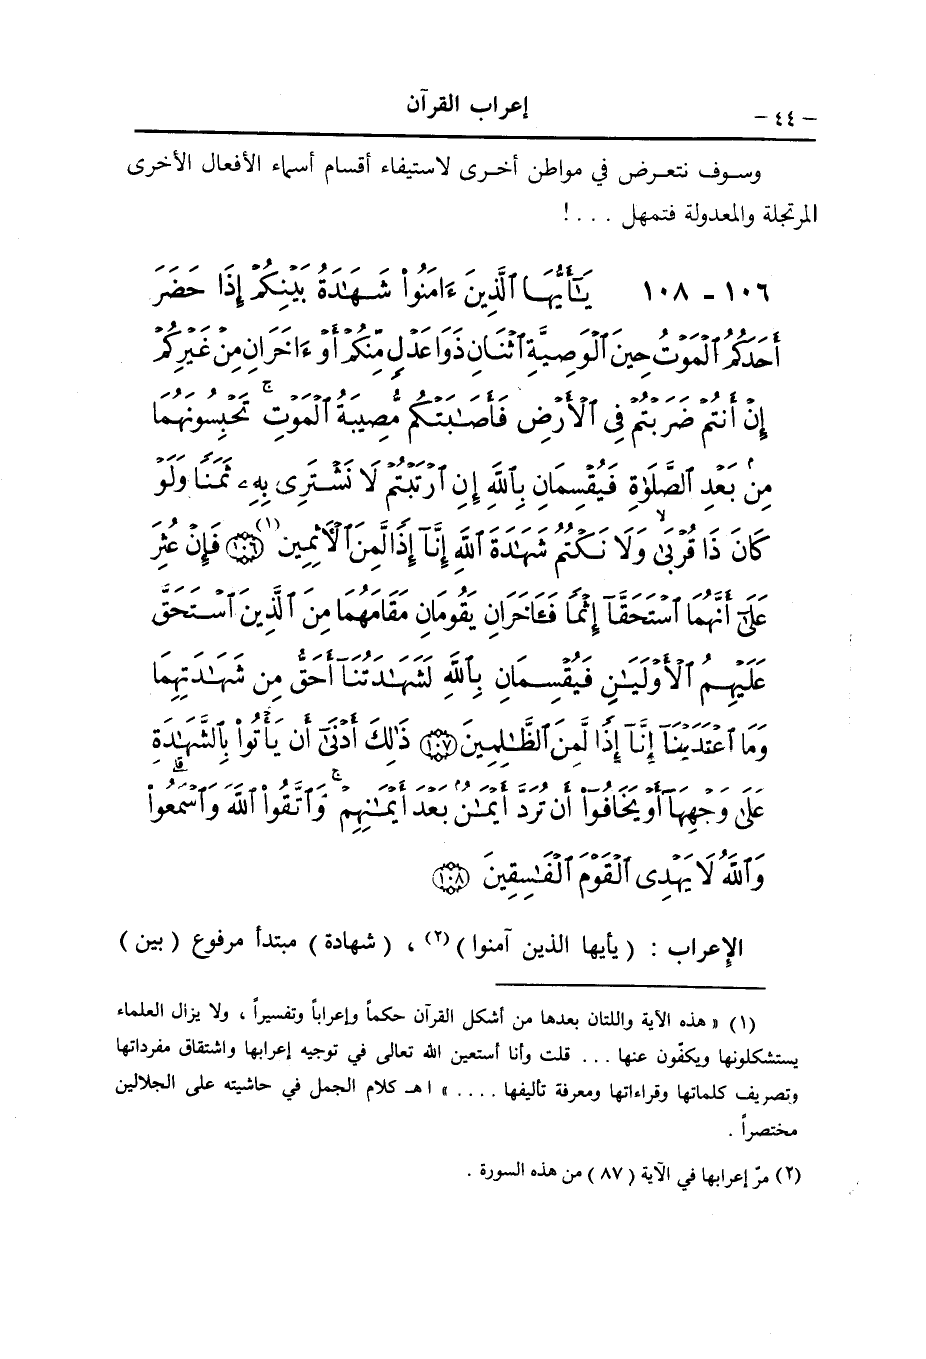 إعراب القرآن
- ٤٤ -
وسوف نتعرض في مواطن أخرى لاستيفاء أقسام أسماء الأفعال الأخرى
المرتجلة والمعدولة فتمهل . . . !
١٠٦ - ١٠٨ يَٰٓأَيُّهَا ٱلَّذِينَ ءَامَنُوا۟ شَهَٰدَةُ بَيْنِكُمْ إِذَا حَضَرَ
أَحَدَكُمُ ٱلْمَوْتُ حِينَ ٱلْوَصِيَّةِ ٱثْنَانِ ذَوَا عَدْلٍ مِّنكُمْ أَوْ ءَاخَرَانِ مِنْ غَيْرِكُمْ
إِنْ أَنتُمْ ضَرَبْتُمْ فِى ٱلْأَرْضِ فَأَصَٰبَتْكُم مُّصِيبَةُ ٱلْمَوْتِ ۚ تَحْبِسُونَهُمَا
مِنۢ بَعْدِ ٱلصَّلَوٰةِ فَيُقْسِمَانِ بِٱللَّهِ إِنِ ٱرْتَبْتُمْ لَا نَشْتَرِى بِهِۦ ثَمَنًا وَلَوْ
كَانَ ذَا قُرْبَىٰ ۙ وَلَا نَكْتُمُ شَهَٰدَةَ ٱللَّهِ إِنَّآ إِذًا لَّمِنَ ٱلْأَثِمِينَ (١) ١٠٦ فَإِنْ عُثِرَ
عَلَىٰٓ أَنَّهُمَا ٱسْتَحَقَّآ إِثْمًا فَـَٔاخَرَانِ يَقُومَانِ مَقَامَهُمَا مِنَ ٱلَّذِينَ ٱسْتَحَقَّ
عَلَيْهِمُ ٱلْأَوْلَيَٰنِ فَيُقْسِمَانِ بِٱللَّهِ لَشَهَٰدَتُنَآ أَحَقُّ مِن شَهَٰدَتِهِمَا
وَمَا ٱعْتَدَيْنَآ إِنَّآ إِذًا لَّمِنَ ٱلظَّٰلِمِينَ ١٠٧ ذَٰلِكَ أَدْنَىٰٓ أَن يَأْتُوا۟ بِٱلشَّهَٰدَةِ
عَلَىٰ وَجْهِهَآ أَوْ يَخَافُوٓا۟ أَن تُرَدَّ أَيْمَٰنٌۢ بَعْدَ أَيْمَٰنِهِمْ ۗ وَٱتَّقُوا۟ ٱللَّهَ وَٱسْمَعُوا۟ ۗ
وَٱللَّهُ لَا يَهْدِى ٱلْقَوْمَ ٱلْفَٰسِقِينَ ١٠٨
الإعراب : ( يأيها الذين آمنوا ) (٢) ، ( شهادة ) مبتدأ مرفوع ( بين )
(١) « هذه الآية واللتان بعدها من أشكل القرآن حكماً وإعراباً وتفسيراً ، ولا يزال العلماء
يستشكلونها ويكفّون عنها . . . قلت وأنا أستعين الله تعالى في توجيه إعرابها واشتقاق مفرداتها
وتصريف كلماتها وقراءاتها ومعرفة تأليفها . . . . » اهـ كلام الجمل في حاشيته على الجلالين
مختصراً .
(٢) مرّ إعرابها في الآية ( ٨٧ ) من هذه السورة .